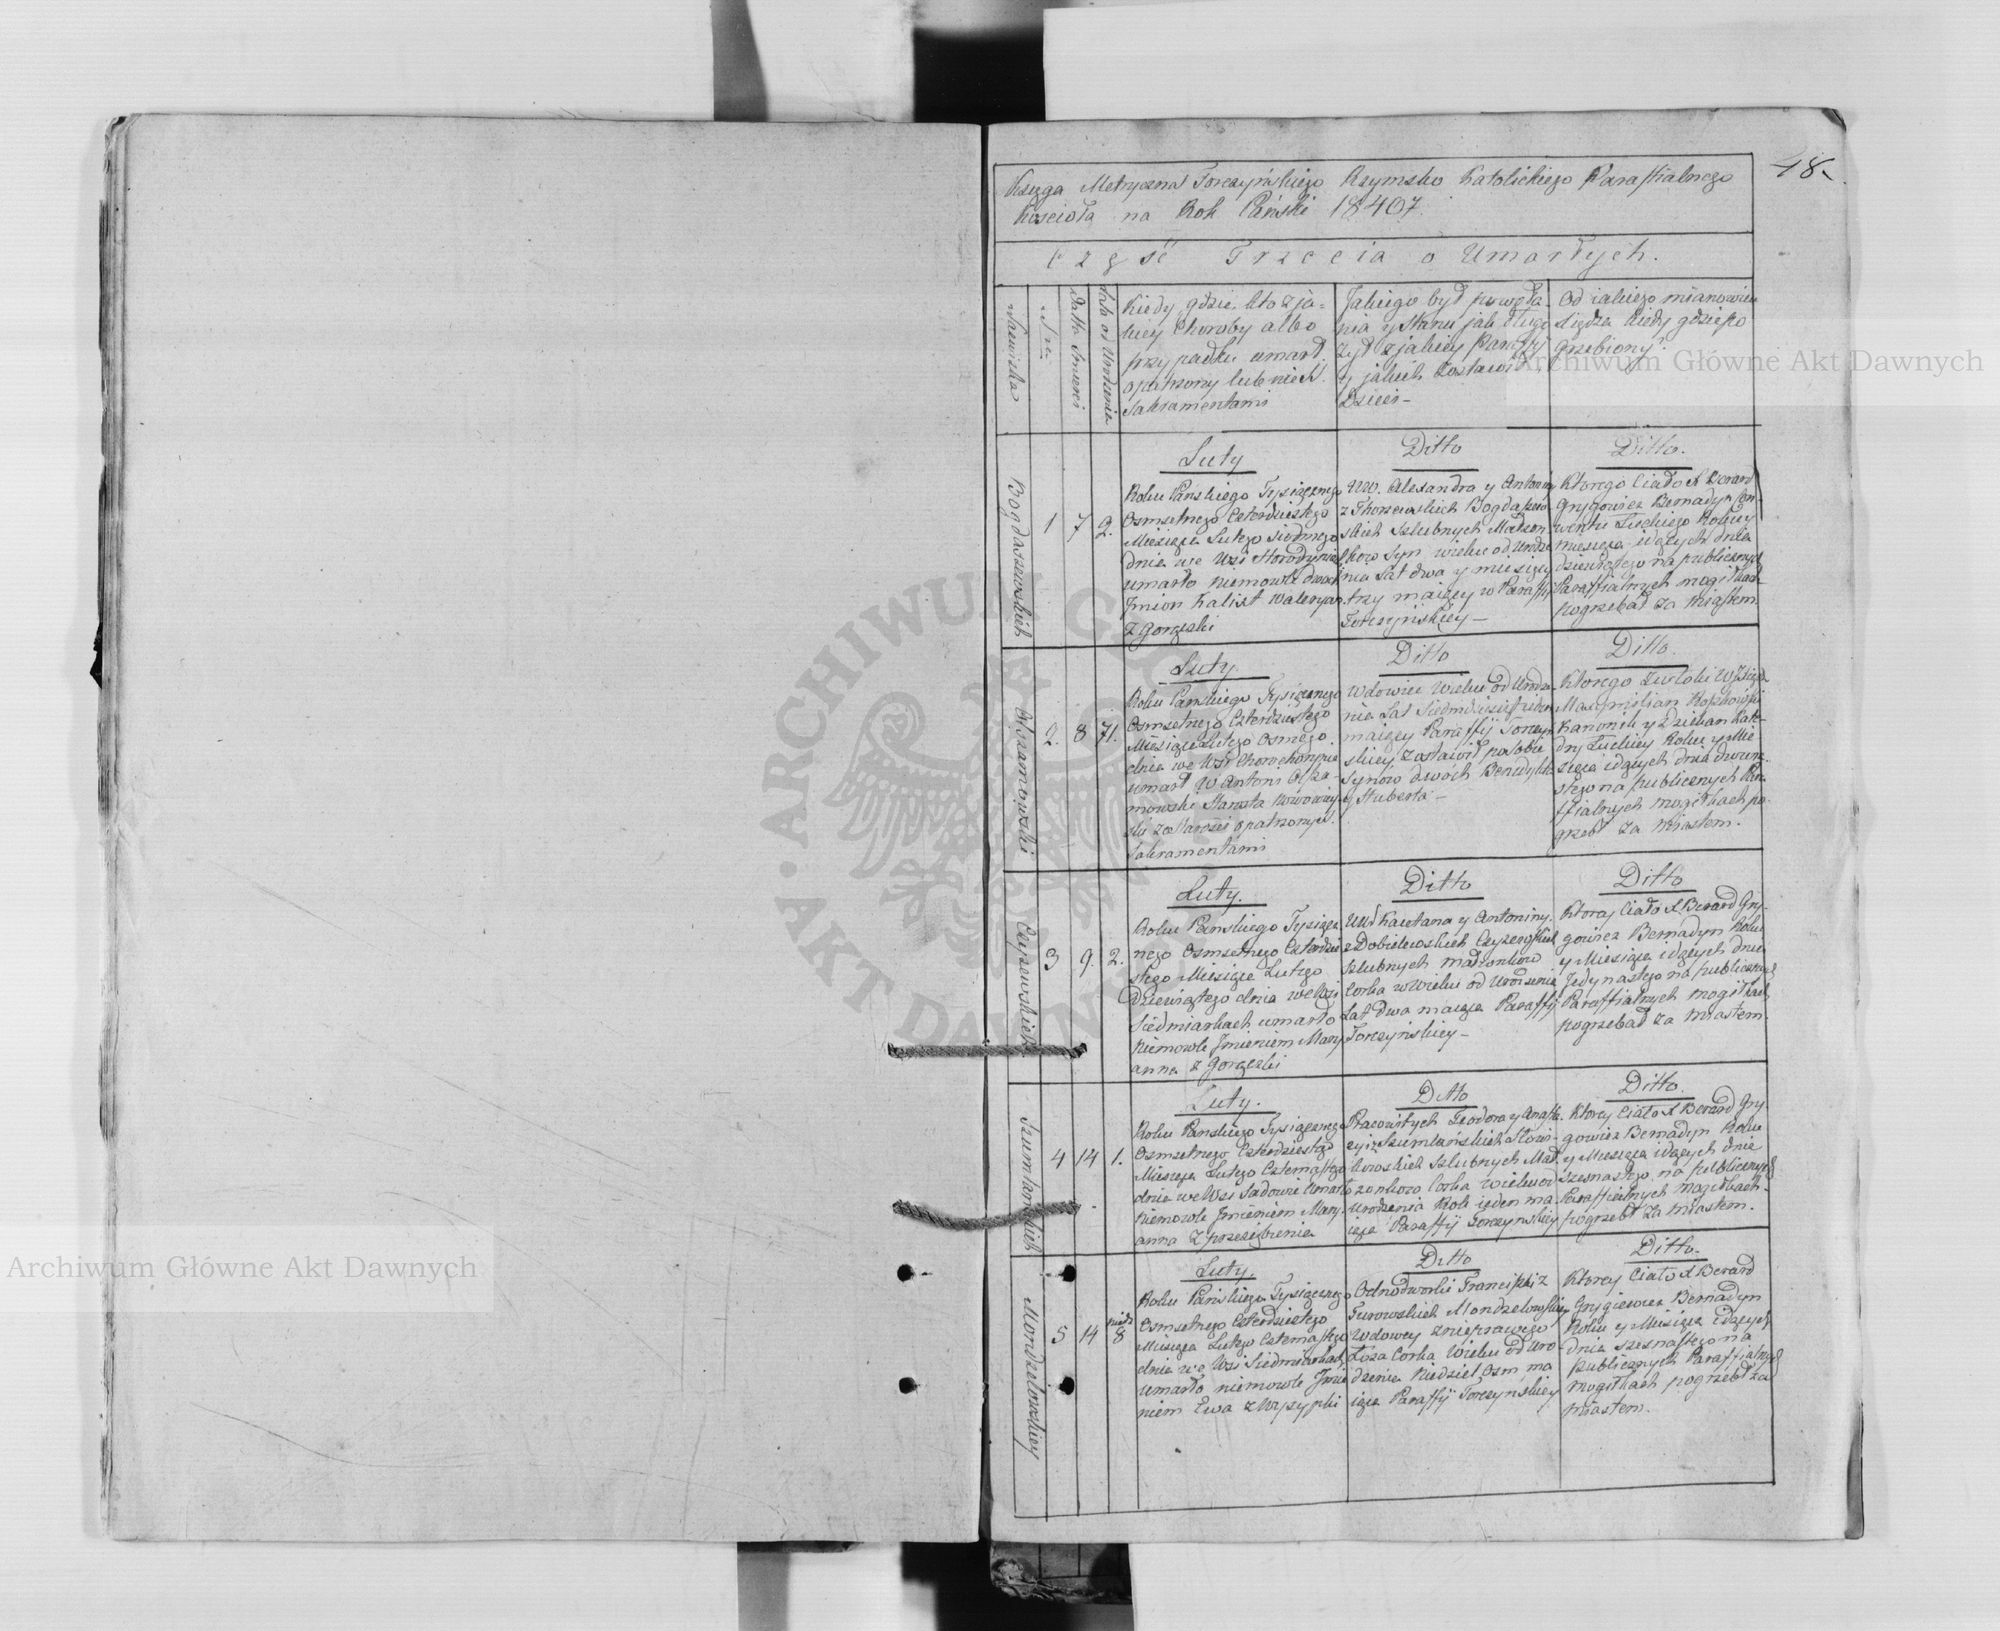 48.
Księga Metryczna Torczyńskiego Rzymsko Katolickiego Paraffialnego
Kościoła na Rok Pański 1840
Część Trzecia o Umarłych.
Nazwiska
Nru
Datta Smierci
Lata od Urodzenia
Kiedy, gdzie, kto z ja=
kiey Choroby albo
przypadku umarł
opatrzony lub nie SS.
Sakramentami
Jakiego był powoła
nia y stanu jak długo
żył z jakiey Paraffij
y jakich zostawił
Dzieci –
Od jakiego mianowicie
Xiędza kiedy gdzie po
grzebiony.
Bogdaszewskich
1
7
2.
Luty
Roku Pańskiego Tysiącznego
Osmsetnego Czterdziestego
Miesiąca Lutego Siódmego
dnia we Wsi
umarło niemowle dwóch
Jmion Kalist Waleryan
z gorączki
Ditto
UW. Alexandra y Antoniny
z Bogdaszew
skich Szlubnych Małżon
ków Syn wieku od Urodze
nia Lat dwa y miesięcy
trzy maiący w Paraffij
Torczyńskiey –
Ditto.
Którego Ciało X Berard
Grygowicz Bernadyn Kon=
wentu Łuckiego Roku y
miesiąca idących dnia
dziewiątego na publicznych
Paraffialnych mogiłkach
pogrzebał za Miastem.
Olszamowski
2.
8
71.
Luty.
Roku Pańskiego Tysiącznego
Osmsetnego Czterdziestego
Miesiąca Lutego Osmego
dnia we Wsi
umarł W Antoni Olsza=
mowski Starosta
ski ze starości opatrzony SS.
Sakramentami
Ditto
Wdowiec Wieku od Urodze
nia Lat Siedmdziesiąt ieden
maiący Paraffij Torczyń
skiey zostawił po sobie
Synów dwóch Benedykta
y Huberta –
Ditto.
Którego Zwłoki W Xiądz
Maxymilian
Kanonik y Dziekan Kate=
dry Łuckiey Roku y Mie
siąca idących dnia dwuna
stego na publicznych Para
ffialnych mogiłkach po=
grzebł za Miastem.
Czyżewskich
3
9.
2.
Luty.
Roku Pańskiego Tysiącz
nego Osmsetnego Czterdzie
stego Miesiąca Lutego
Dziewiątego dnia we Wsi
Siedmiarkach umarło
Niemowle Jmieniem Mary
anna z gorączki
Ditto
UW Kaietana y Antoniny
z Dobielewskich Czyżewskich
Szlubnych małżonków
Corka w Wieku od Urodzenia
Lat Dwa maiąca Paraffij
Torczyńskiey –
Ditto
Którey Ciało X Berard Gry=
gowicz Bernadyn Roku
y Miesiąca idących dnia
Jedynastego na publicznych
Paraffialnych mogiłkach
pogrzebał za Miastem.
Szumlańskich
4
14
1.
Luty.
Roku Pańskiego Tysiącznego
Osmsetnego Czterdziestego
Miesiąca Lutego Czternastego
dnia we Wsi Sadowie Umarło
Niemowle Jmieniem Mary
anna z przeziębienia
Ditto
Pracowitych Teodora y Anasta
zyi z Szumlańskich
kowskich Szlubnych Mał
żonków Corka Wieku od
urodzenia Rok ieden ma
iąca Paraffij Torczyńskiey
Ditto.
Którey Ciało X Berard Gry
gowicz Bernadyn Roku
y Miesiąca idących dnia
szesnastego na publicznych
Paraffialnych mogiłkach
pogrzebł za Miastem.
Mondzelowskiey
5
14
niedz
8
Luty.
Roku Pańskiego Tysiącznego
Osmsetnego Czterdziestego
Miesiąca Lutego Czternastego
dnia we Wsi Siedmiarkach
umarło niemowle Jmie
niem Ewa z Wysypki
Ditto
Odnodworki Franciszki z
Turowskich Mondzelowskiey
Wdowey z nieprawego
Łoża Corka Wieku od Uro
dzenia Niedziel Osm ma
iąca Paraffij Torczyńskiey
Ditto.
Którey Ciało X Berard
Grygiewicz Bernadyn
Roku y Miesiąca idących
dnia szesnastego na
Publicznych Paraffialnych
mogiłkach pogrzebł za
Miastem.
Archiwum Główne Akt Dawnych
Archiwum Główne Akt Dawnych